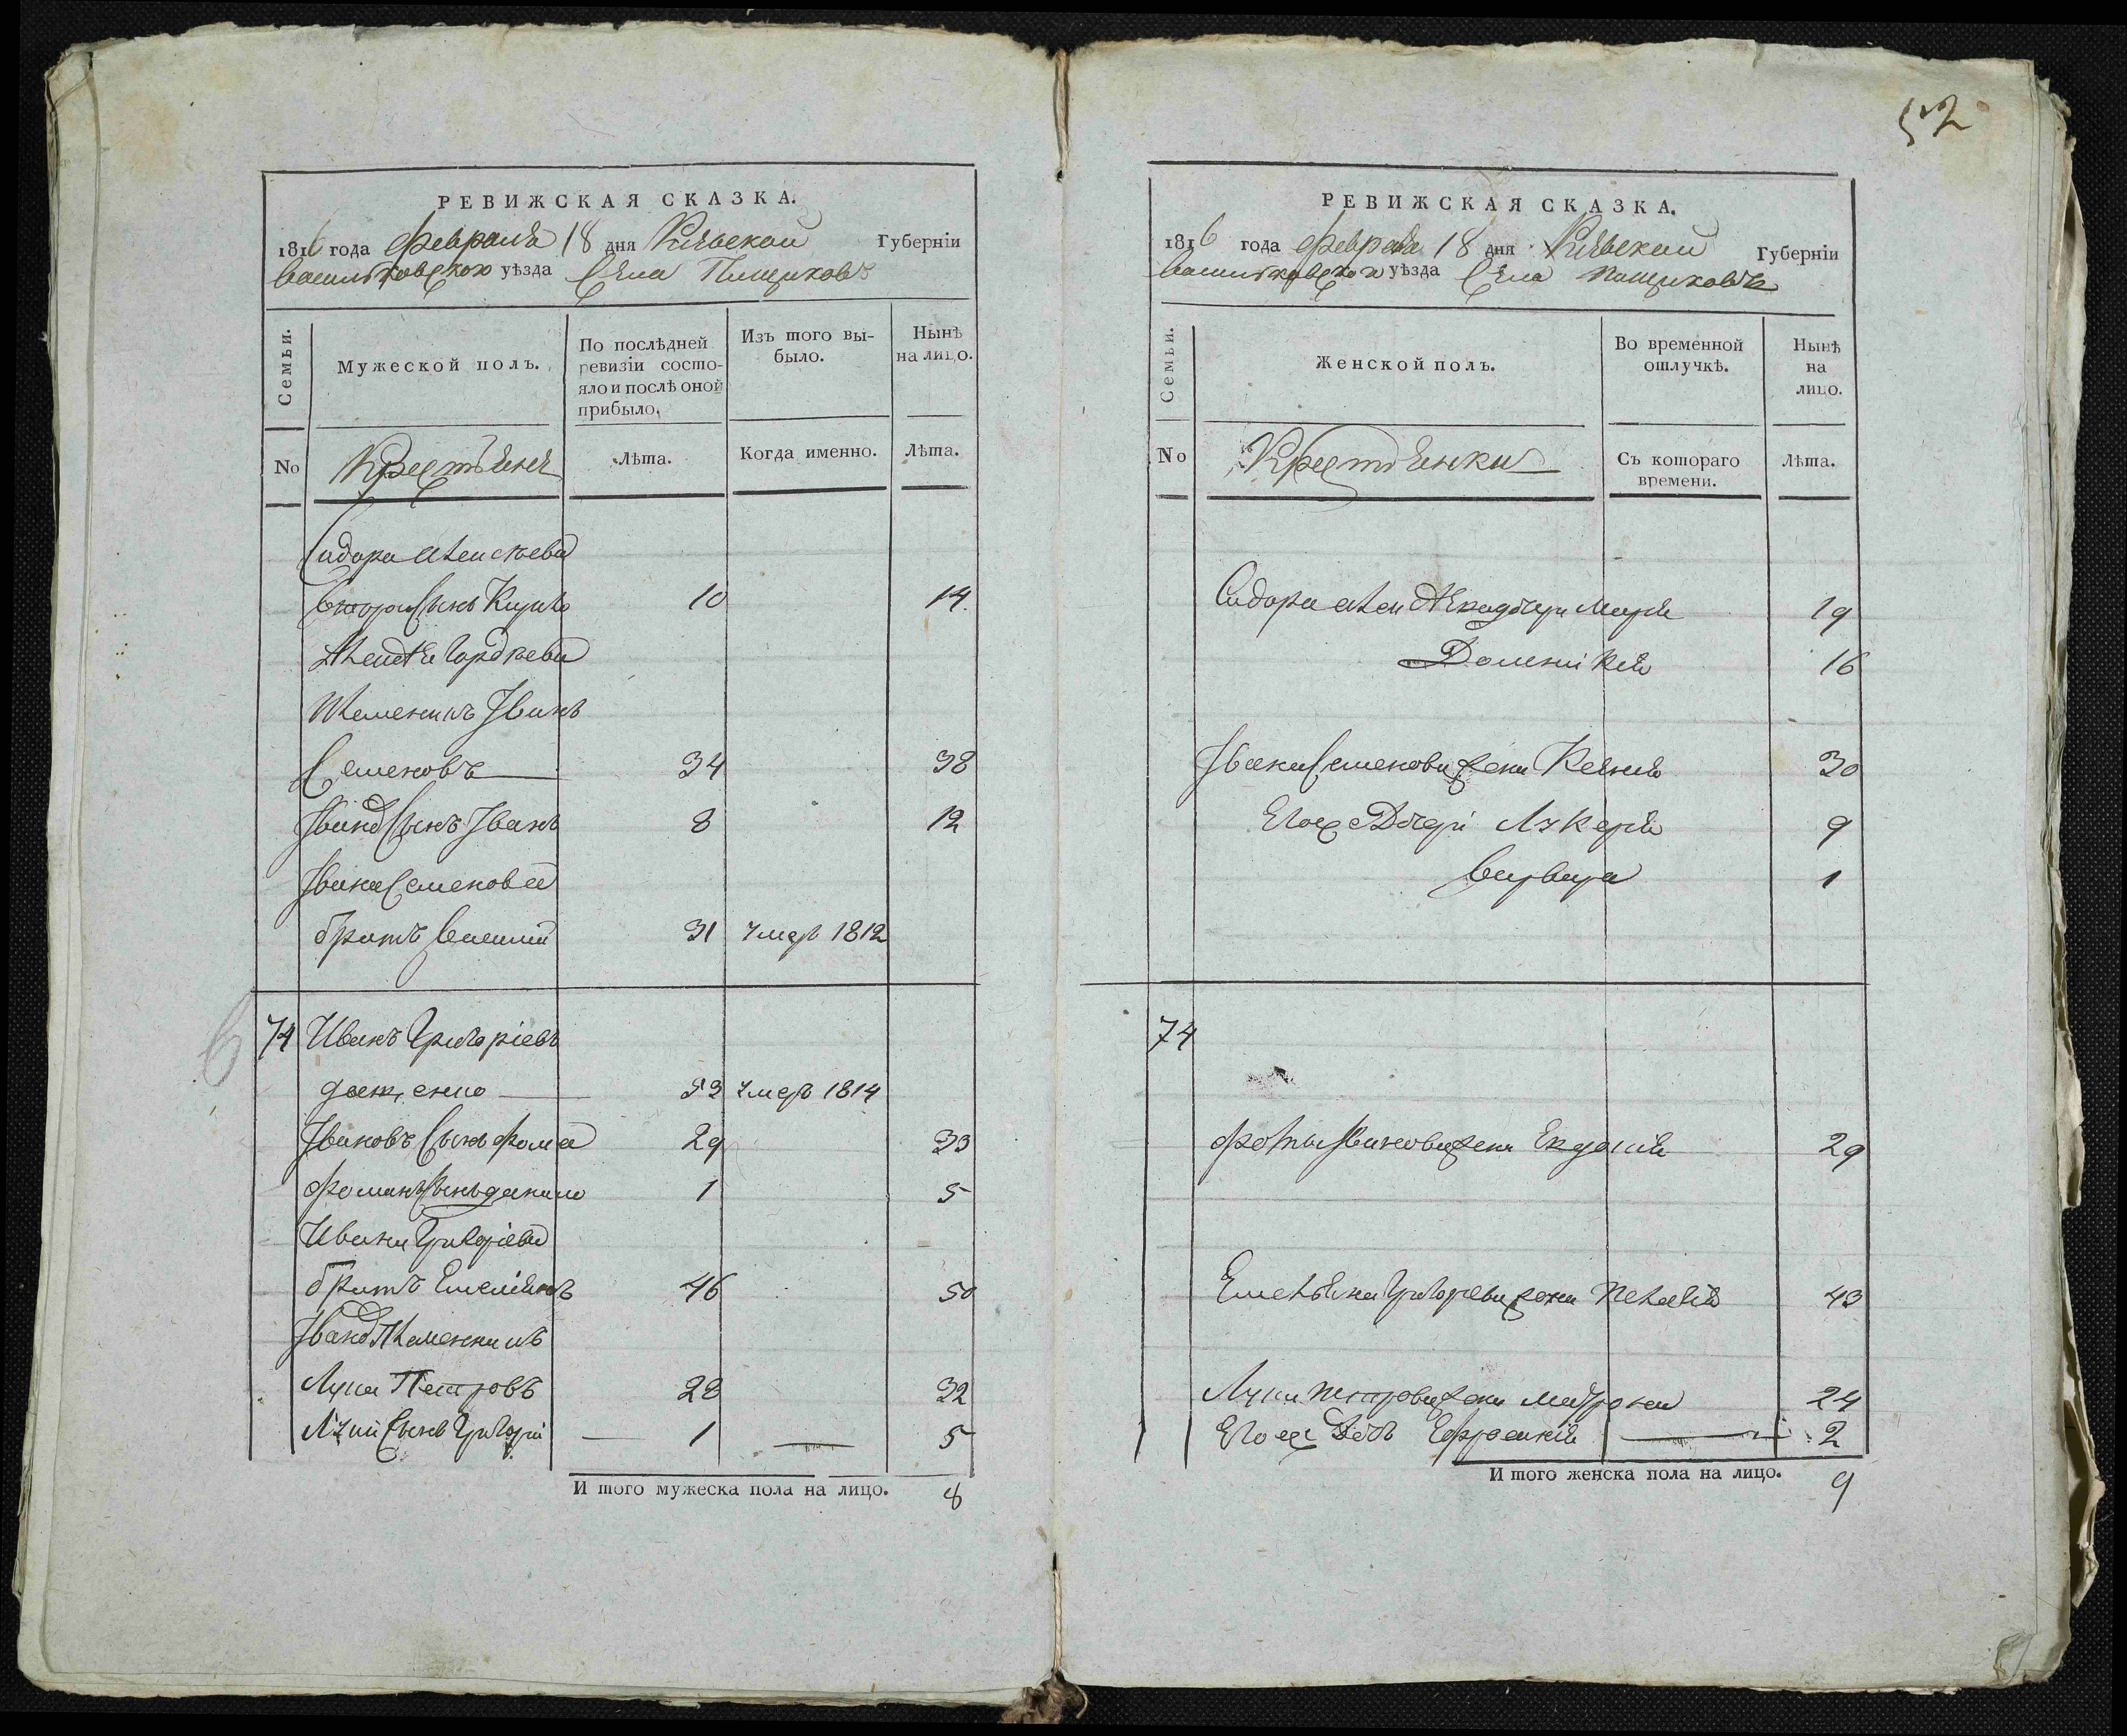 52
РЕВИЖСКАЯ СКАЗКА.
1816 года Февраля 18 дня Кіевской Губерніи
Васильковского уѣзда Села Пищиковъ
Семьи.
Мужеской полъ.
По послѣдней ревизіи состо-
яло и послѣ оной прибыло.
Изъ того вы-
было.
Нынѣ на лицо.
No
Крестьяне
Лѣта.
Когда именно.
Лѣта.
Сидора Алексѣева
второй Сынъ Кирило 10 14
Племенникъ Іванъ
Семеновъ 34 38
Івана Сынъ Іванъ 8 12
Івана Семенова
братъ Василий 31 умеръ 1812
74 Иванъ Григоріевъ
53 умеръ 1814
Івановъ Сынъ Фома 29 33
Фоминъ Сынъ данило 1 5
Ивана Григоріева
братъ Емелианъ 46 50
Івана Племенникъ
Лука Петровъ 28 32
Лукин Сынъ Григорій 1 5
И того мужеска пола на лицо. 8
РЕВИЖСКАЯ СКАЗКА.
1816 года Февраля 18 дня Кіевской Губерніи
Васильковского уѣзда Села Пищиковъ
Семьи.
Женской полъ.
Во временной отлучкѣ.
Нынѣ на лицо.
No
Крестьянки
Съ котораго времени.
Лѣта.
Сидора дочери Марія 19
Доминікия 16
Івана Семенова жена Ксенія 30
Его дочери Лукерия 9
Варвара 1
74
Фомы Іванова жена Евдокия 29
Емельяна Григорева жена Пелагия 43
Луки Петрова жена Матрона 24
Его дочь Ефросиния 2
И того женска пола на лицо. 9